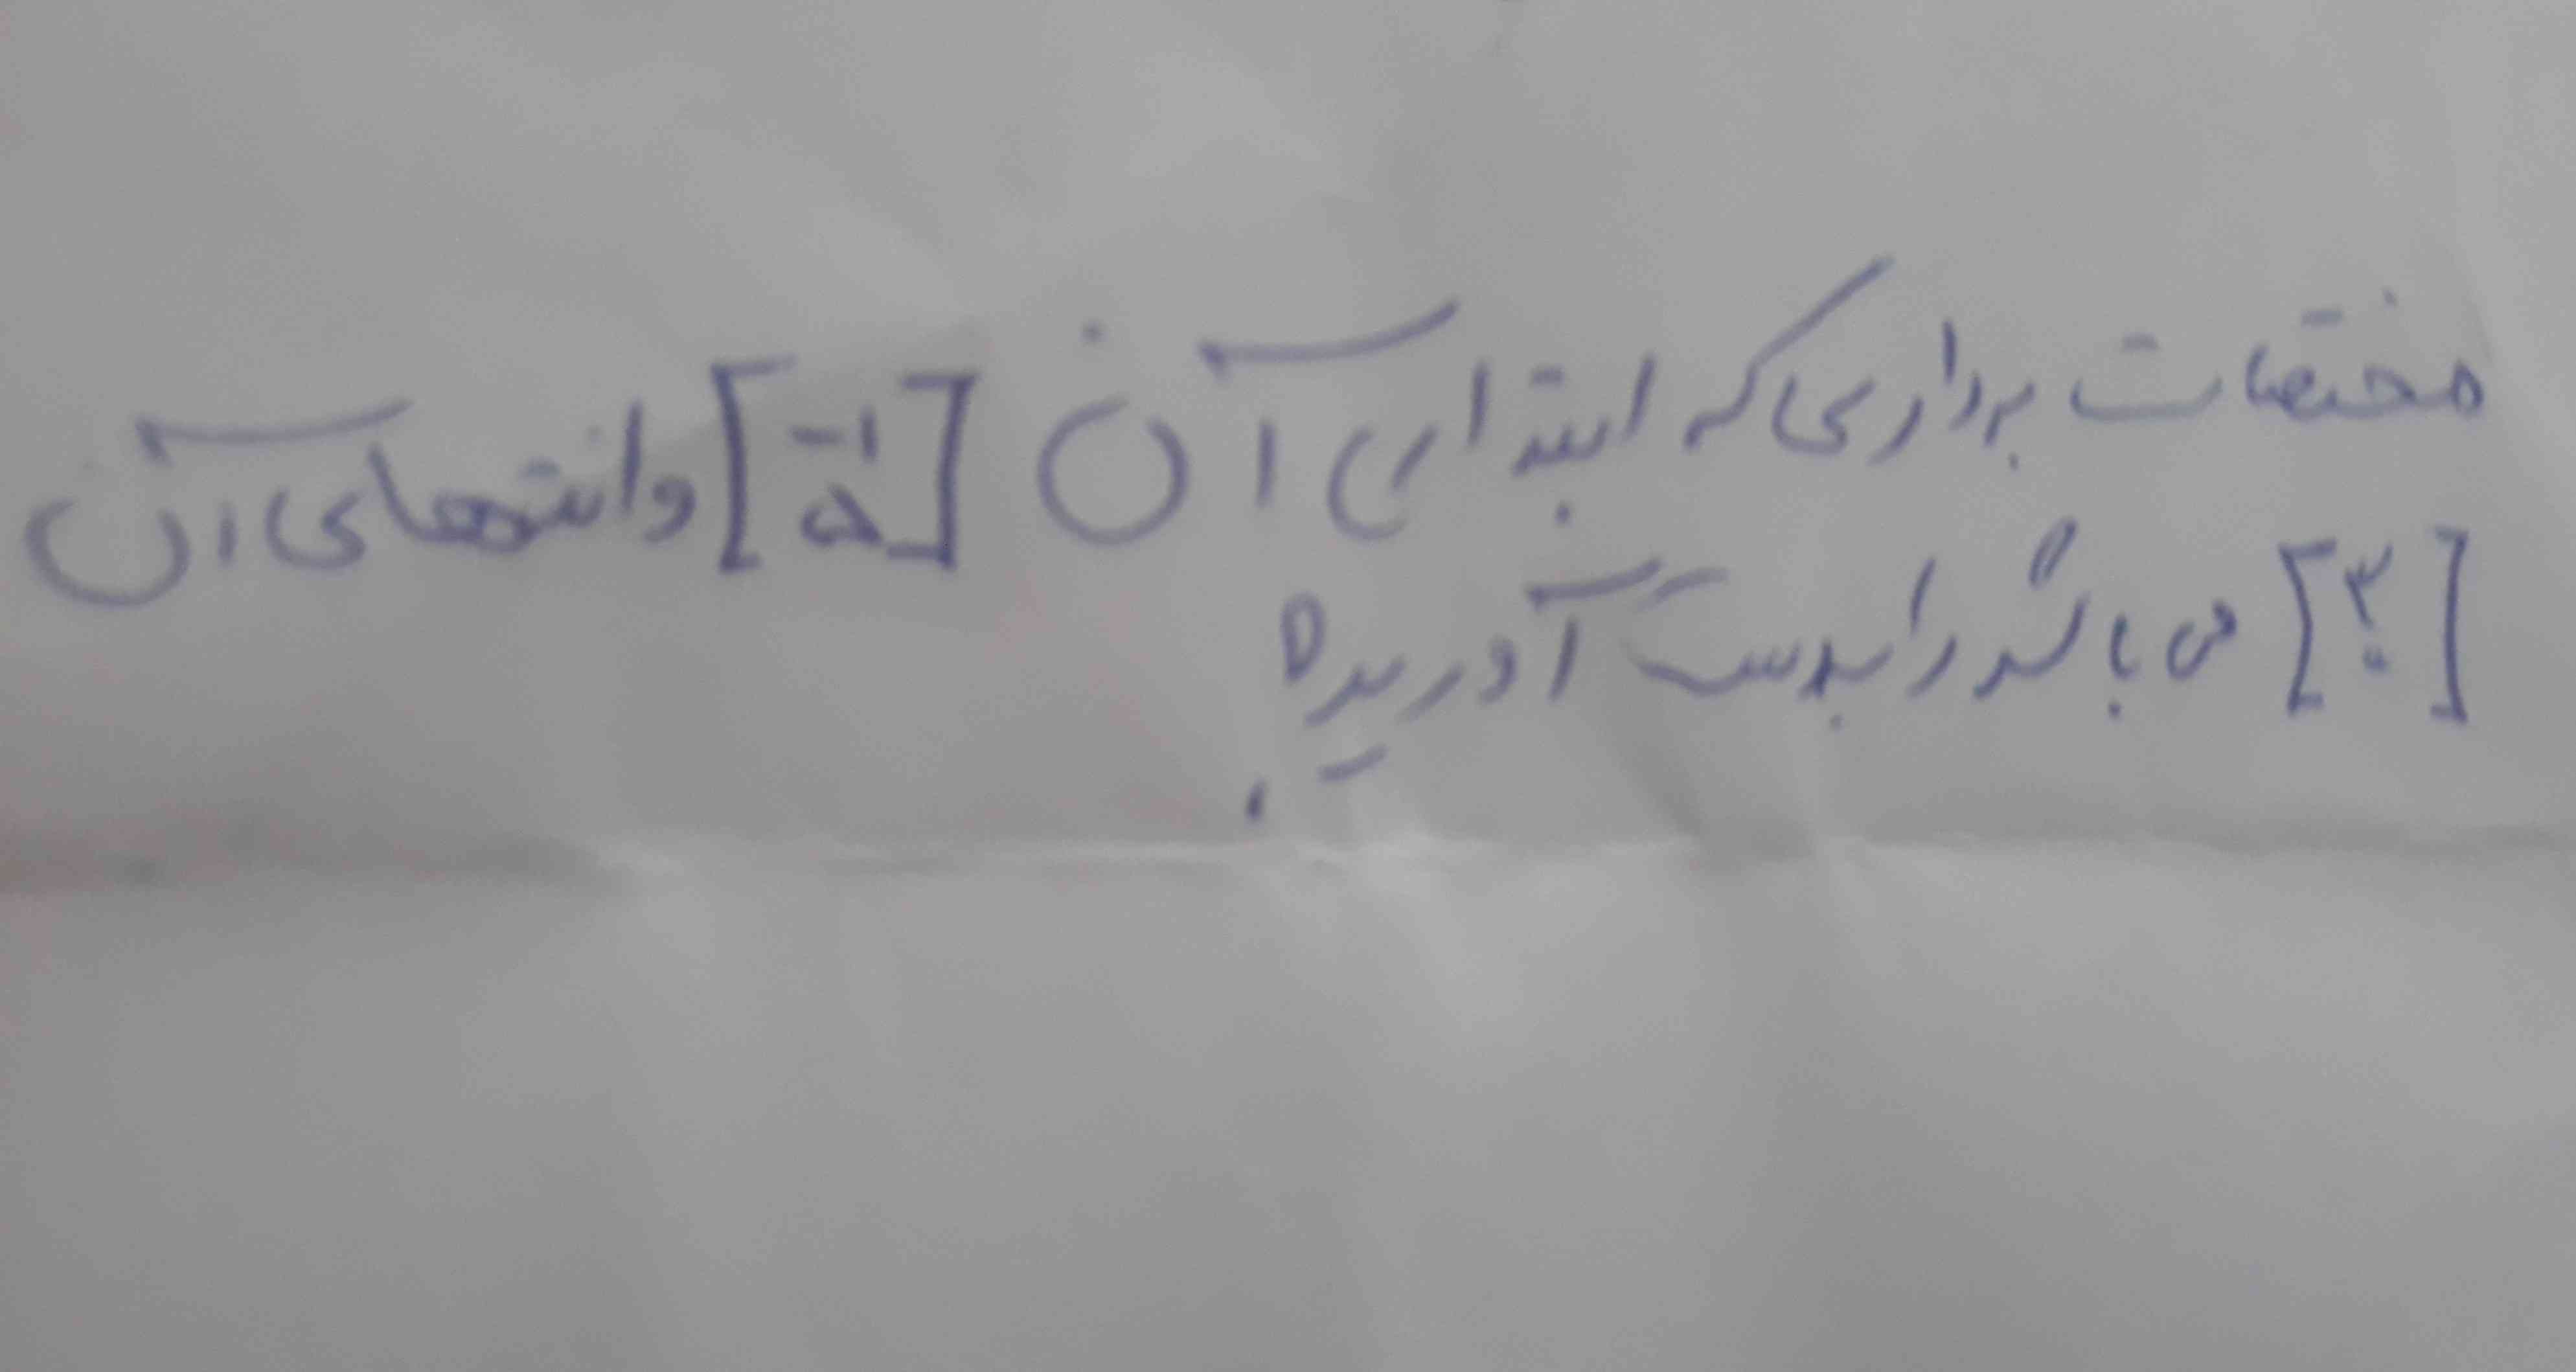 مختصات برداری که ابتدای آن [−۱ ۵] و انتهای آن
[۳ ۰] می باشد را بدست آورید؟